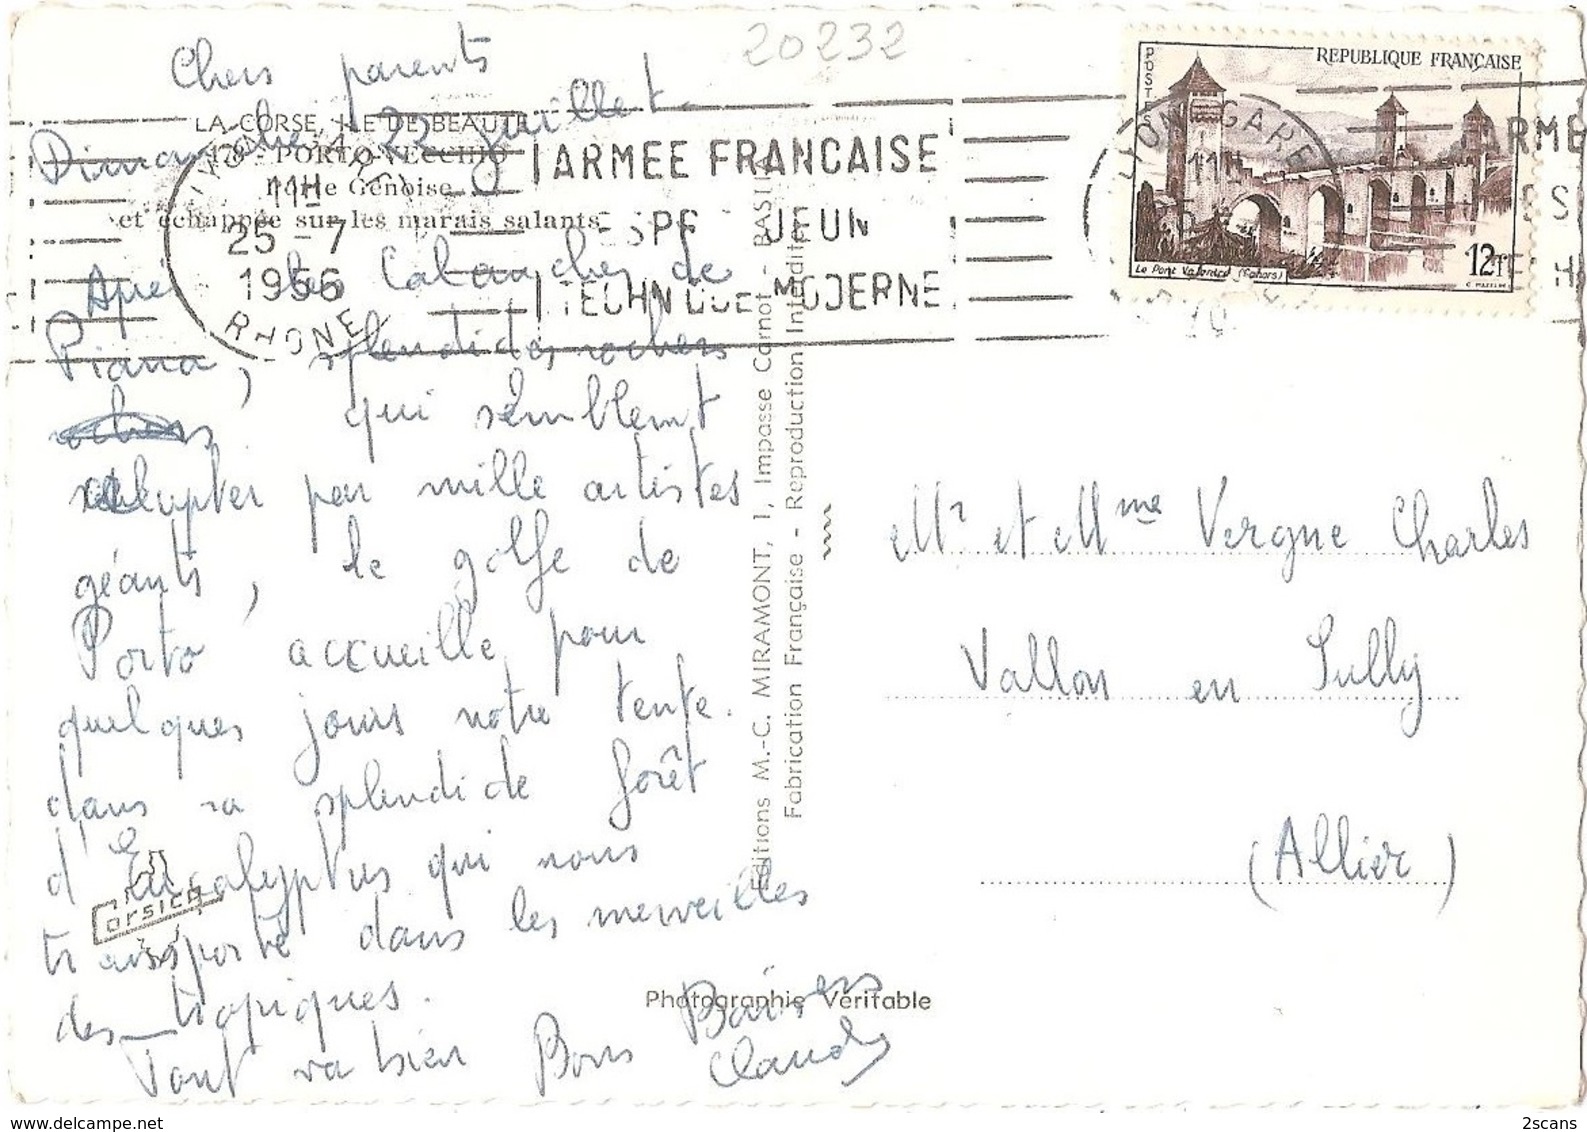 20232
Chers parents
Dimanche 22 juillet
LA CORSE, ILE DE BEAUTE
178 - PORTO-VECCHIO
Porte Génoise
et échappée sur les marais salants
LYON GARE
11H
25 - 7
1956
RHONE
ARMEE FRANCAISE
ESPRIT JEUNE
TECHNIQUE MODERNE
POSTES
REPUBLIQUE FRANÇAISE
12F
Le Pont Valentré (Cahors)
C. MAZELIN
Après les Calanches de
Piana, splendides rochers
rochers qui semblent
sculpter par mille artistes
géants, le golfe de
Porto accueille pour
quelques jours notre tente.
dans sa splendide forêt
d'Eucalyptus qui nous
transporte dans les merveilles
des tropiques.
Tout va bien Bons Baisers
Claude
Corsica
Editions M.-C. MIRAMONT, 1, Impasse Carnot - BASTIA
Fabrication Française - Reproduction Interdite
Photographie Véritable
Mr et Mme Vergne Charles
Vallon en Sully
(Allier)
2scans